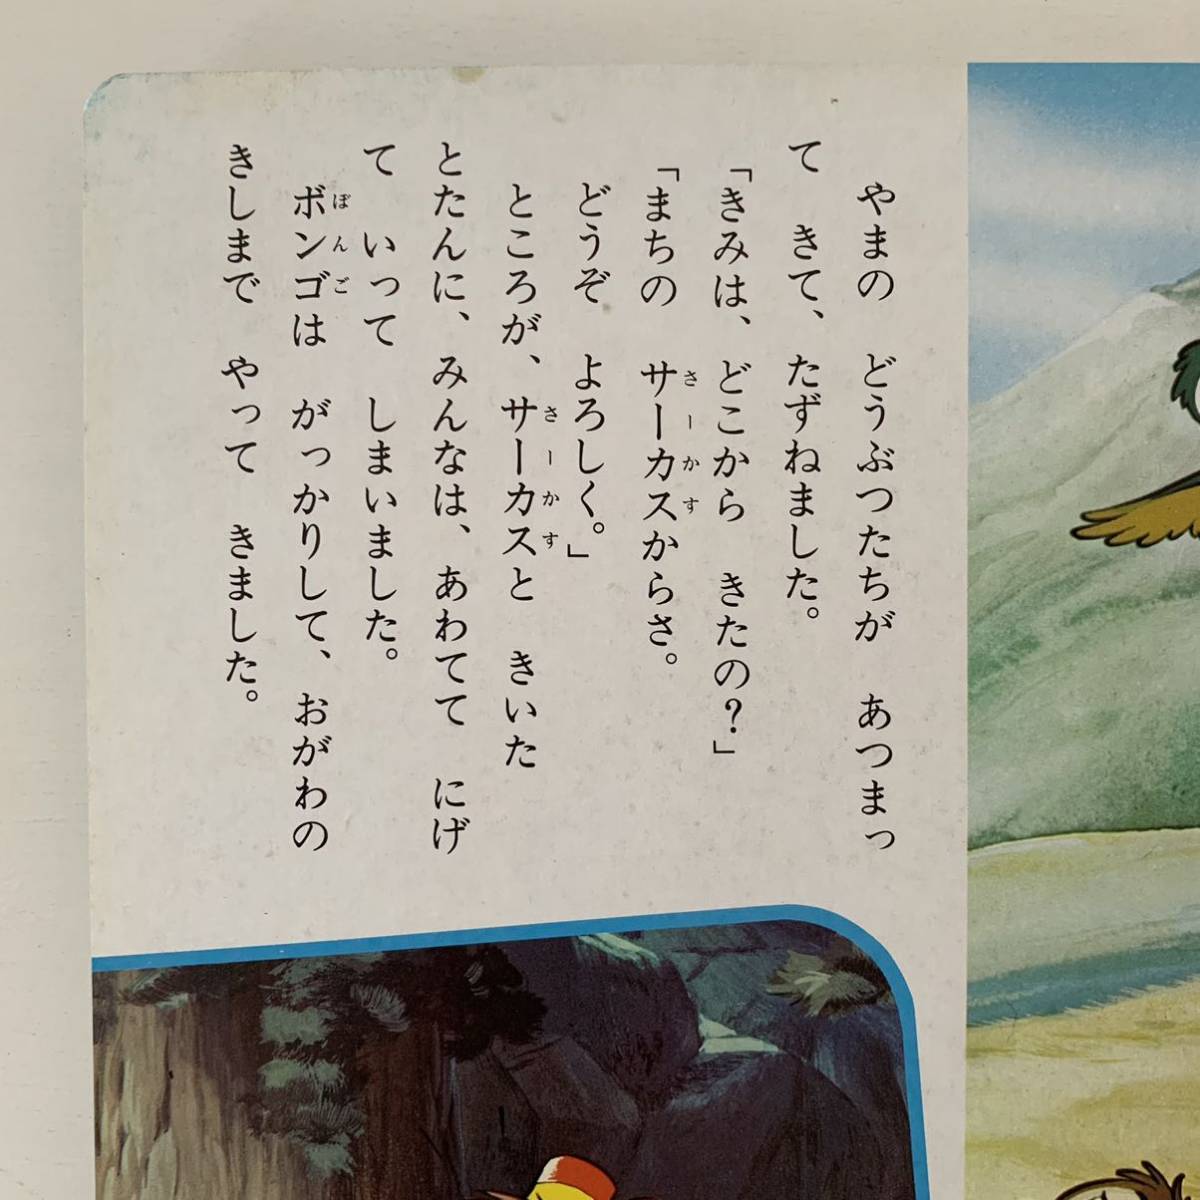 やまの　どうぶつたちが　あつまっ
て　きて、たずねました。
「きみは、どこから　きたの？」
「まちの　サーカスからさ。
さーかす
どうぞ　よろしく。」
ところが、サーカスと　きいた
さーかす
とたんに、みんなは、あわてて　にげ
て　いって　しまいました。
ボンゴは　がっかりして、おがわの
ぼんご
きしまで　やって　きました。